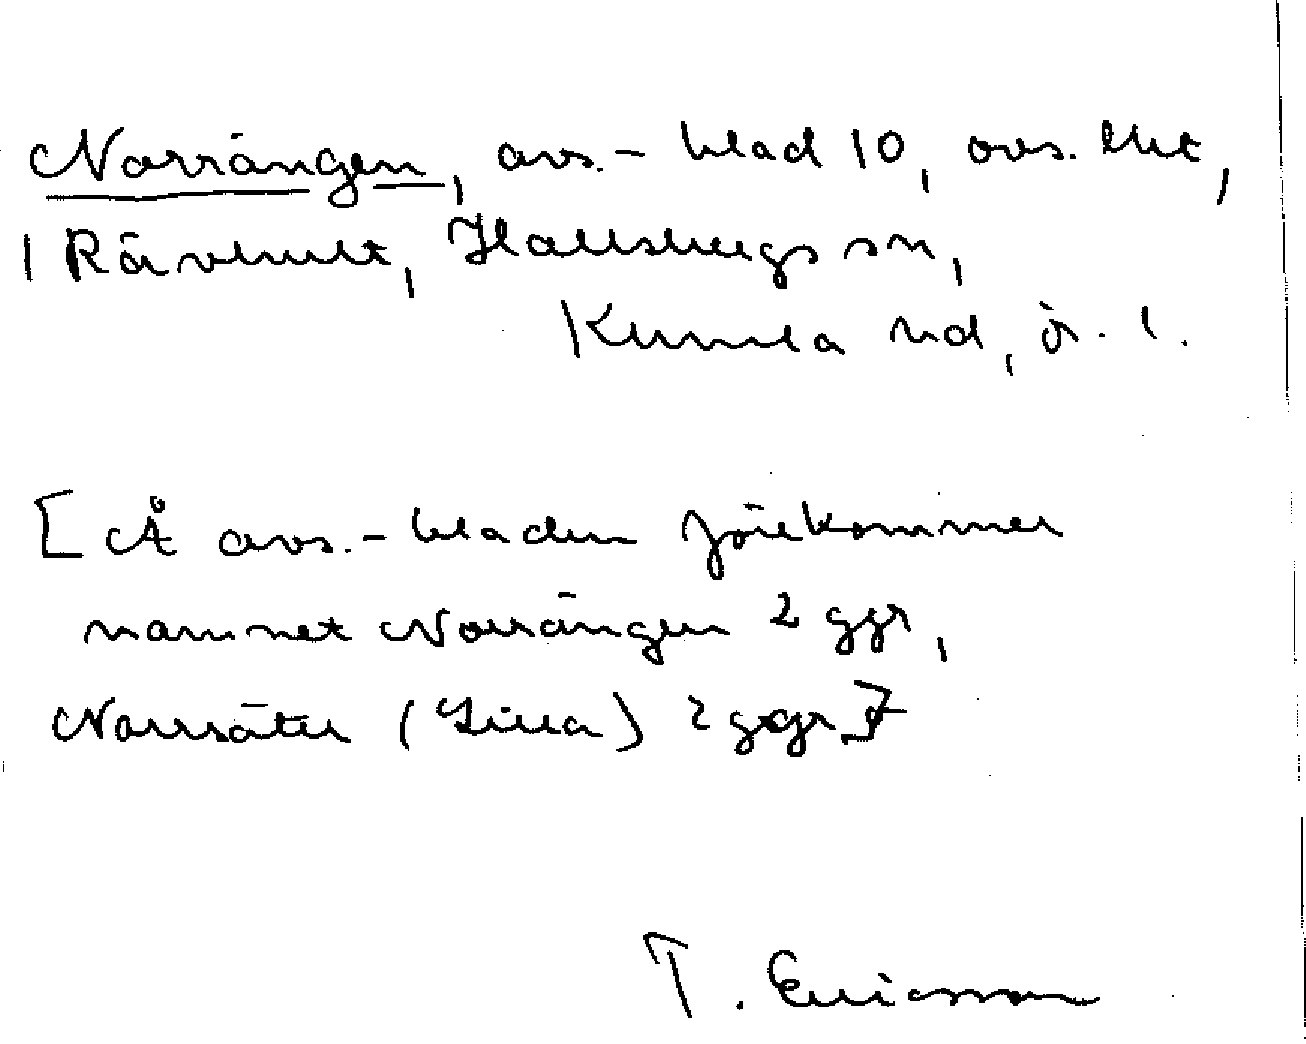 Norrängen, avs.- blad 10, ovs. tht,
1 Rävhult, Hallsbergs sn,
Kumla hd, Ör. l.
[Å avs.- bladen förekommer
namnet Norrängen 2 ggr,
Norrsäter (Lilla) 2 ggr.]
T. Ericsson